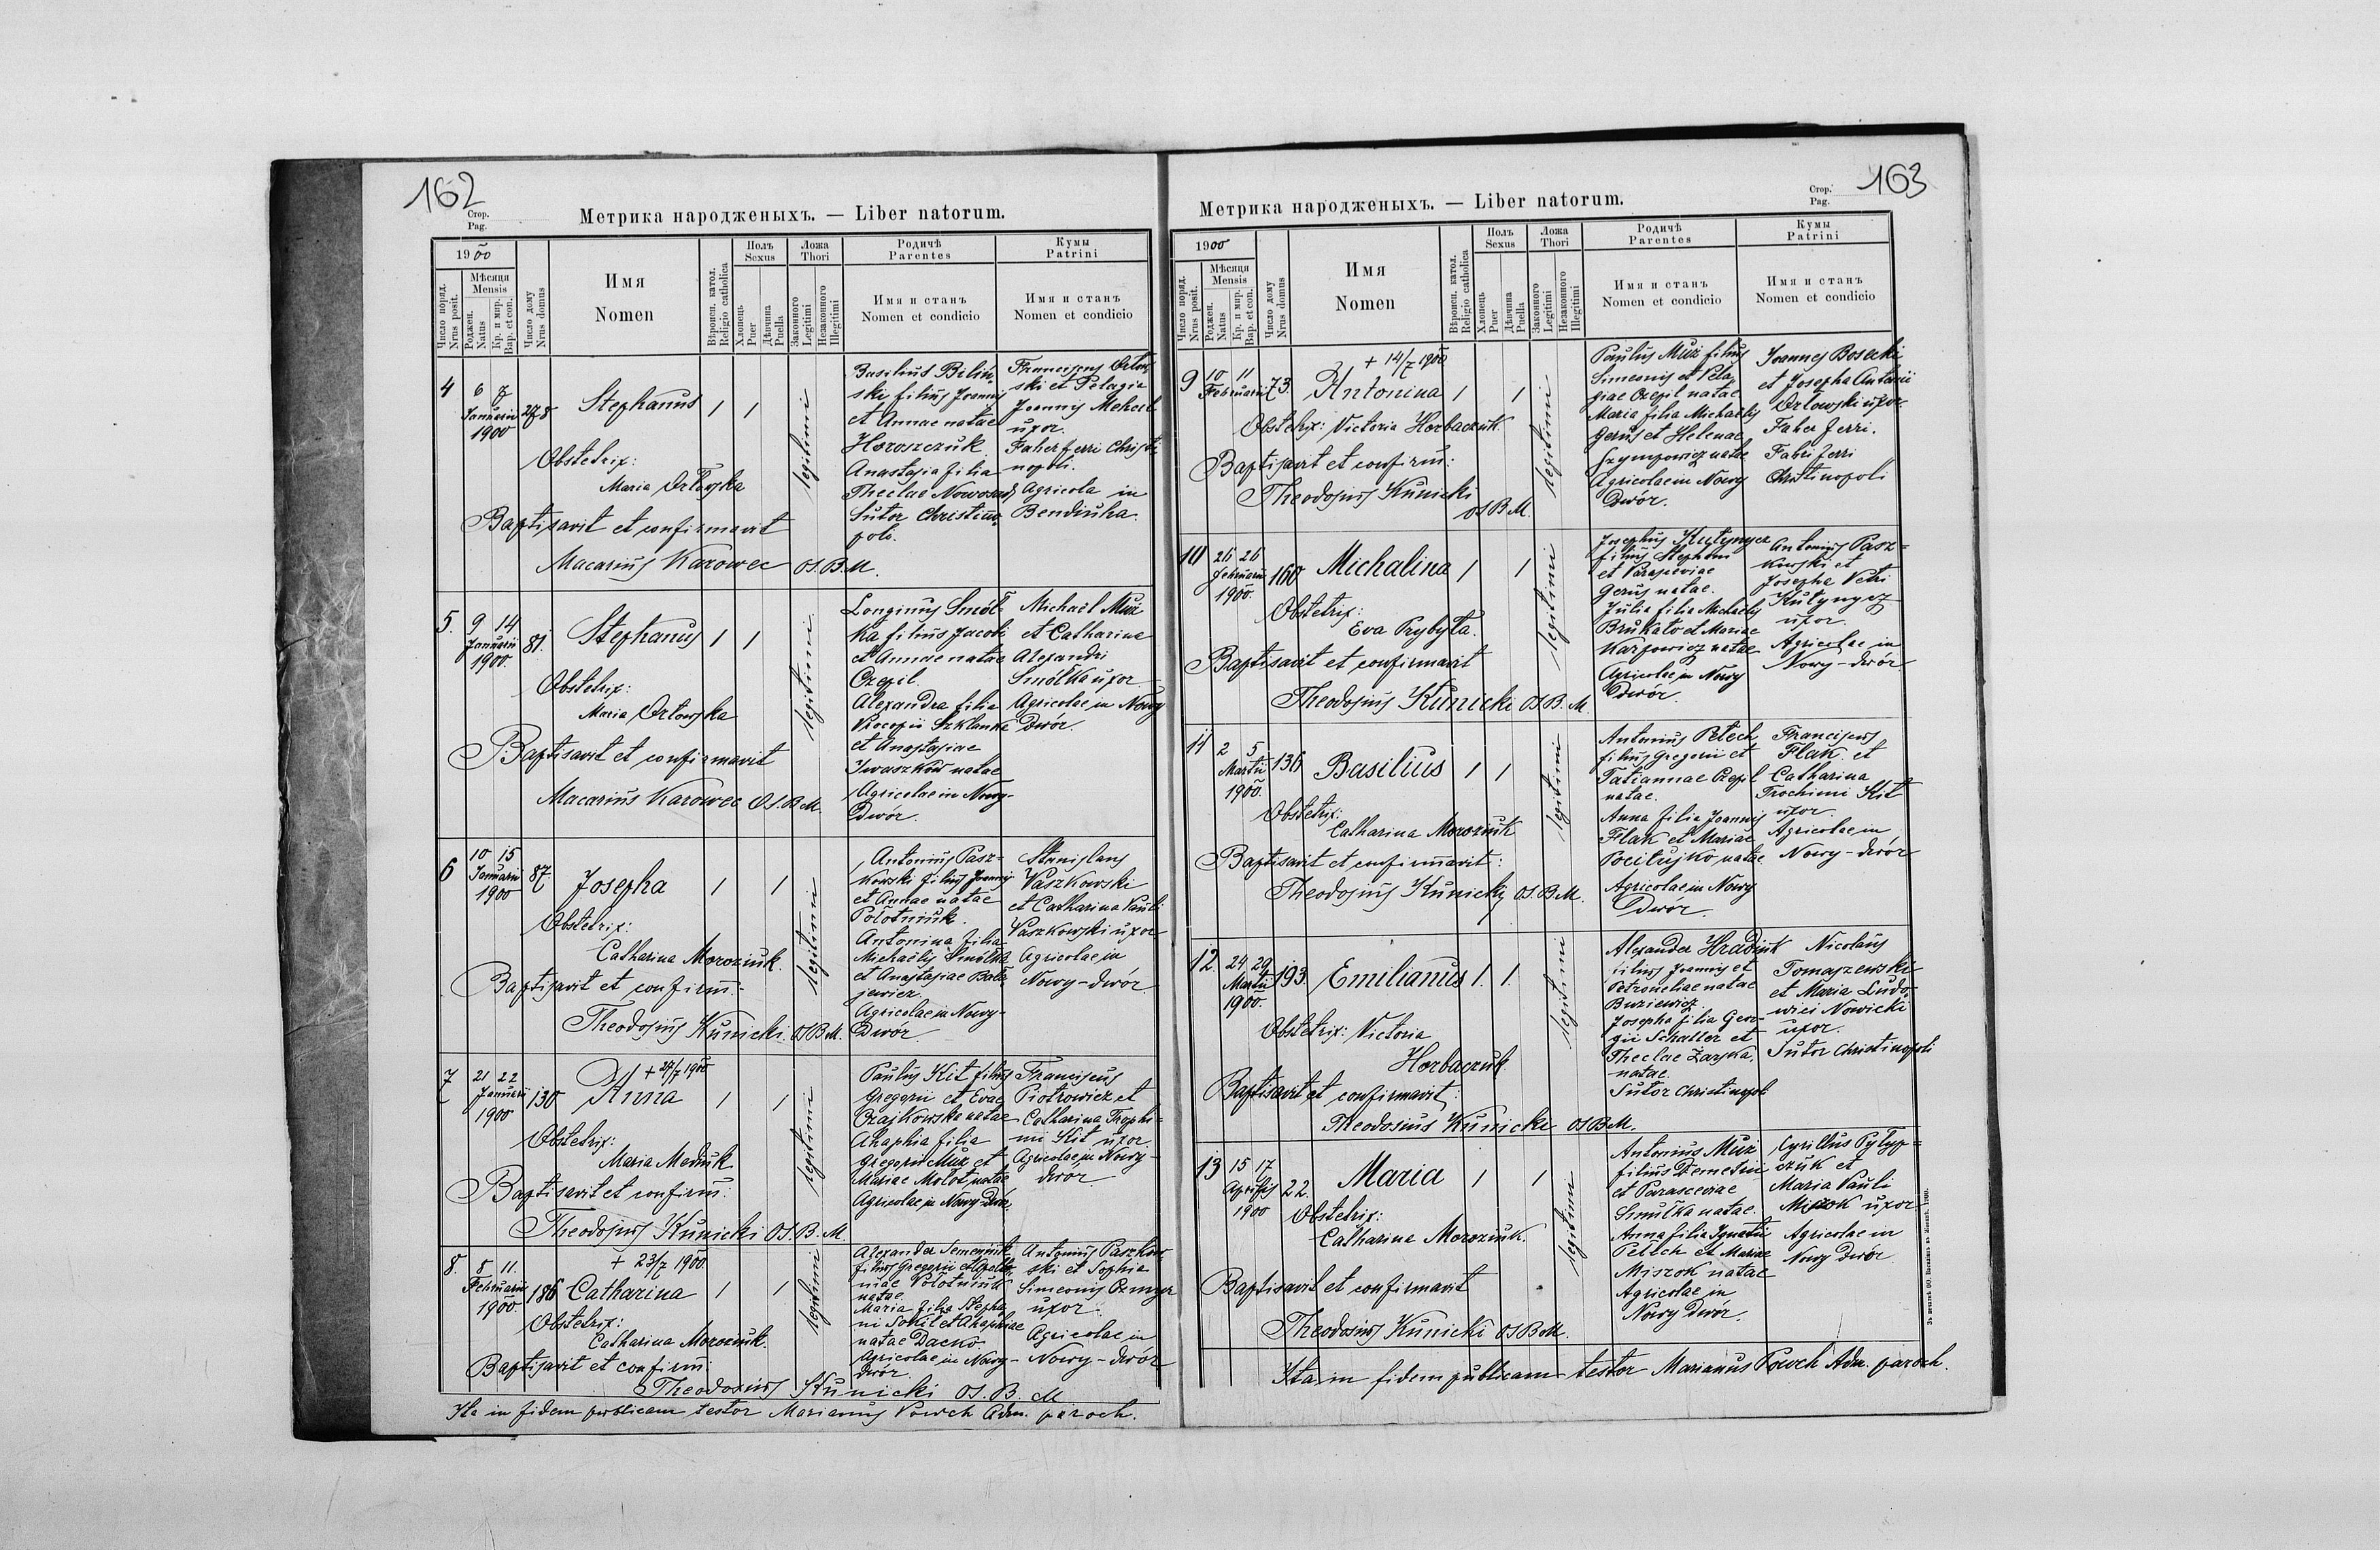 162
Стор.
Pag.
Метрика народженыхъ. — Liber natorum.
1900
Число поряд.
Nrus posit.
Мѣсяця
Mensis
Роджен.
Natus
Кр. и мир.
Bap. et con.
Число дому
Nrus domus
Имя
Nomen
Вѣроисп. катол.
Religio catholica
Полъ
Sexus
Хлопець
Puer
Дѣвчина
Puella
Ложа
Thori
Законного
Legitimi
Незаконного
Illegitimi
Родичѣ
Parentes
Имя и станъ
Nomen et condicio
Кумы
Patrini
Имя и станъ
Nomen et condicio
4
6 7
Januarii
1900
278
Stephanus
1 1
legitimi
Obstetrix:
Maria Orłowska
Baptisavit et confirmavit
Macarius Karowec OS.B.M.
Basilius Biliń-
ski filius Joannis
et Annae natae
Horoszczuk.
Anastasia filia
Theclae Nowosad
Sutor Christino-
poli.
Franciscus Orłow-
ski et Pelagia
Joannis
uxor.
Faber ferri Christi-
nopoli.
Agricola in
Bendiuha.
5.
9 14
Januarii
1900.
81.
Stephanus
1 1
legitimi
Obstetrix:
Maria Orłowska
Baptisavit et confirmavit
Macarius Karowec O.S.B.M.
Longinus Smół-
ka filius Jacobi
et Annae natae
Czepil.
Alexandra filia
Procopii Szklanka
et Anastasiae
Iwaszków natae
Agricolae in Nowy-
Dwór.
Michaël Muz
et Catharina
Alexandri
Smółka uxor
Agricolae in Nowy
Dwór.
6
10 15
Januarii
1900
87.
Josepha
1 1
legitimi
Obstetrix:
Catharina Moroziuk.
Baptisavit et confirm:
Theodosius Kunicki. OSBM.
Antonius Pasz-
kowski filius Joannis
et Annae natae
Połotniuk.
Antonina filia
Michaëlis Smółka
et Anastasiae
Agricolae in Nowy-
Dwór.
Stanislaus
Paszkowski
et Catharina Pauli
Paszkowski uxor
Agricolae in
Nowy-dwór.
7
21 22
Januarii
1900
130
+ 27/7 1900
Anna
1 1
legitimi
Obstetrix:
Maria Mediuk
Baptisavit et confirm:
Theodosius Kunicki OS.B.M.
Paulus Kit filius
Gregorii et Evae
Czajkowska natae
Ahaphia filia
Gregorii Muz et
Mariae Mołot natae
Agricolae in Nowy Dwór.
Franciscus
Piotrowicz et
Catharina Trophi-
mi Kit uxor
Agricolae in Nowy-
dwór
8.
8 11.
Februarii
1900.
186
+ 23/7 1900
Catharina
1 1
legitimi
Obstetrix:
Catharina Moroziuk.
Baptisavit et confirm:
Theodosius Kunicki OS.B.M
Alexander Semeniuk
filius Gregorii et
Połotniuk
natae.
Maria filia Stepha-
ni Sokil et Ahaphiae
natae Dacko.
Agricolae in Nowy-
dwór
Antonius Paszkow-
ski et Sophia
Simeonis
uxor.
Agricolae in
Nowy-dwór
Ita in fidem publicam testor Marianus Powch Adm. paroch.
163
Стор.
Pag.
Метрика народженыхъ. — Liber natorum.
1900
Число поряд.
Nrus posit.
Мѣсяця
Mensis
Роджен.
Natus
Кр. и мир.
Bap. et con.
Число дому
Nrus domus
Имя
Nomen
Вѣроисп. катол.
Religio catholica
Полъ
Sexus
Хлопець
Puer
Дѣвчина
Puella
Ложа
Thori
Законного
Legitimi
Незаконного
Illegitimi
Родичѣ
Parentes
Имя и станъ
Nomen et condicio
Кумы
Patrini
Имя и станъ
Nomen et condicio
9
10 11
Februarii
73.
+ 14/7 1900
Antonina
1 1
legitimi
Obstetrix: Victoria Horbaczuk
Baptisavit et confirm:
Theodosius Kunicki
OSBM.
Paulus Muz filius
Simeonis et Pela-
giae Czepil natae.
Maria filia Michaelis
Gerus et Helenae
Szympowicz natae
Agricolae in Nowy
Dwór.
Joannes Bosecki
et Josepha Antonii
Orłowski uxor.
Faber ferri.
Fabri ferri
Christinopoli
10
26 26
Februarii
1900.
160
Michalina
1 1
legitimi
Obstetrix:
Eva Prybyła.
Baptisavit et confirmavit
Theodosius Kunicki OSB.M.
Josephus Kutynycz
filius Stephani
et Parasceviae
Gerus natae.
Julia filia Michaelis
Brukało et Mariae
Karpowicz natae
Agricolae in Nowy
Dwór.
Antonius Pasz=
kowski et
Josepha Petri
Kutynycz
uxor.
Agricolae in
Nowy-dwór
11
2 5
Martii
1900.
136
Basilius
1 1
legitimi
Obstetrix:
Catharina Moroziuk
Baptisavit et confirmavit:
Theodosius Kunicki OS.B.M.
Antonius Petech
filius Gregorii et
Tatiannae Czepil
natae.
Anna filia Joannis
Flak et Mariae
Pocitujko natae
Agricolae in Nowy
Dwór.
Franciscus
Flak et
Catharina
Trochimi Kit
uxor.
Agricolae in
Nowy-dwór
12.
24 29
Martii
1900.
193.
Emilianus
1. 1.
legitimi
Obstetrix: Victoria
Horbaczuk
Baptisavit et confirmavit:
Theodosius Kunicki OSBM.
Alexander Hradiuk
filius Joannis et
Petroneliae natae
Buziewicz.
Josepha filia Geor-
gii Schaller et
Theclae Zarska,
natae.
Sutor Christinopoli
Nicolaus
Tomaszewski
et Maria Ludo-
wici Nowicki
uxor.
Sutor Christinopoli
13
15 17
Aprilis
1900
22.
Maria
1 1
legitimi
Obstetrix:
Catharina Moroziuk.
Baptisavit et confirmavit
Theodosius Kunicki OSBM.
Antonius Muz
filius Demetrii
et Parasceviae
Smułka natae.
Anna filia Ignatii
Petech et Mariae
Miszok natae
Agricolae in
Nowy Dwór.
Cyrillus Pylyp=
czuk et
Maria Pauli
Miszok uxor
Agricolae in
Nowy Dwór
Ita in fidem publicam testor Marianus Powch Adm. paroch.